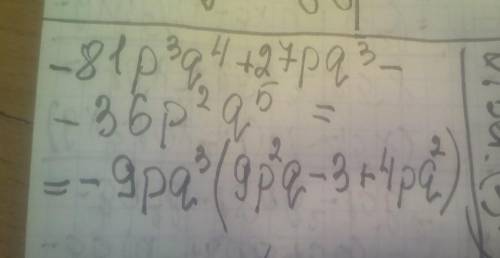 -81p³q⁴+27pq³-
-36p²q⁵ =
=-9pq³(9p²q-3+4pq²)